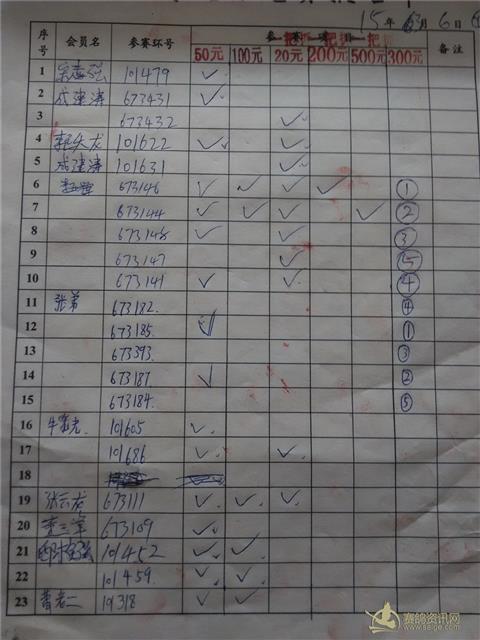 15年 月6日
序号 会员名 参赛环号 参赛项目 备注
50元 100元 20元 200元 500元 300元
1 101479 ✓
2 成建涛 673431 ✓
3 673432 ✓
4 龙 101622 ✓ ✓
5 成建涛 101631 ✓
6 673146 ✓ ✓ ✓ ✓ ①
7 673144 ✓ ✓ ✓ ✓ ②
8 673148 ✓ ✓ ③
9 673147 ✓ ⑤
10 673141 ✓ ✓ ④
11 张弟 673182. ④
12 673185. ✓ ①
13 673393. ③
14 673187. ✓ ②
15 673184. ⑤
16 牛 101605 ✓
17 101686 ✓ ✓
18
19 张云龙 673111 ✓ ✓ ✓
20 李三军 673109 ✓
21 101452 ✓ ✓
22 101459. ✓ ✓
23 曹老二 101318 ✓ ✓
赛鸽资讯网
www.saige.com